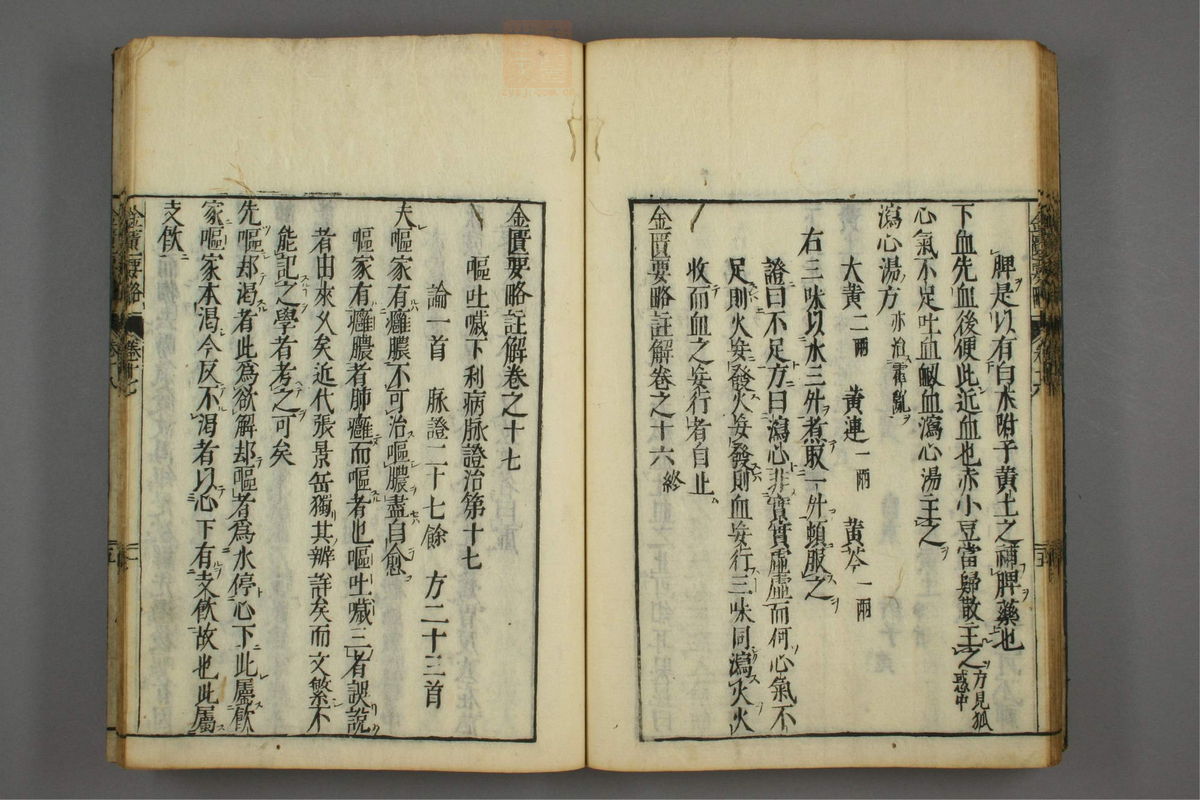 脾是以有白朮附子黄土之補脾藥也
下血先血後便此近血也赤小豆當歸散主之方見狐惑中
心氣不足吐血衂血瀉心湯主之
瀉心湯方亦治霍亂
大黄二兩　黄連一兩　黄芩一兩
右三味以水三升煮取一升頓服之
證曰不足方曰瀉心非實實虚虚而何心氣不
足則火妄發火妄發則血妄行三味同瀉火火
收而血之妄行者自止
金匱要略註解卷之十六終
金匱要略註解卷之十七
嘔吐噦下利病脉證治第十七
論一首　脉證二十七餘　方二十三首
夫嘔家有癰膿不可治嘔膿盡自愈
嘔家有癰膿者肺癰而嘔者也嘔吐噦三者誤說
者由來久矣近代張景岳獨其辨詳矣而文繁不
能記之學者考之可矣
先嘔却渴者此爲欲解却嘔者爲水停心下此屬飲
家嘔家本渴今反不渴者以心下有支飲故也此屬
支飲
金匱要略
卷十七